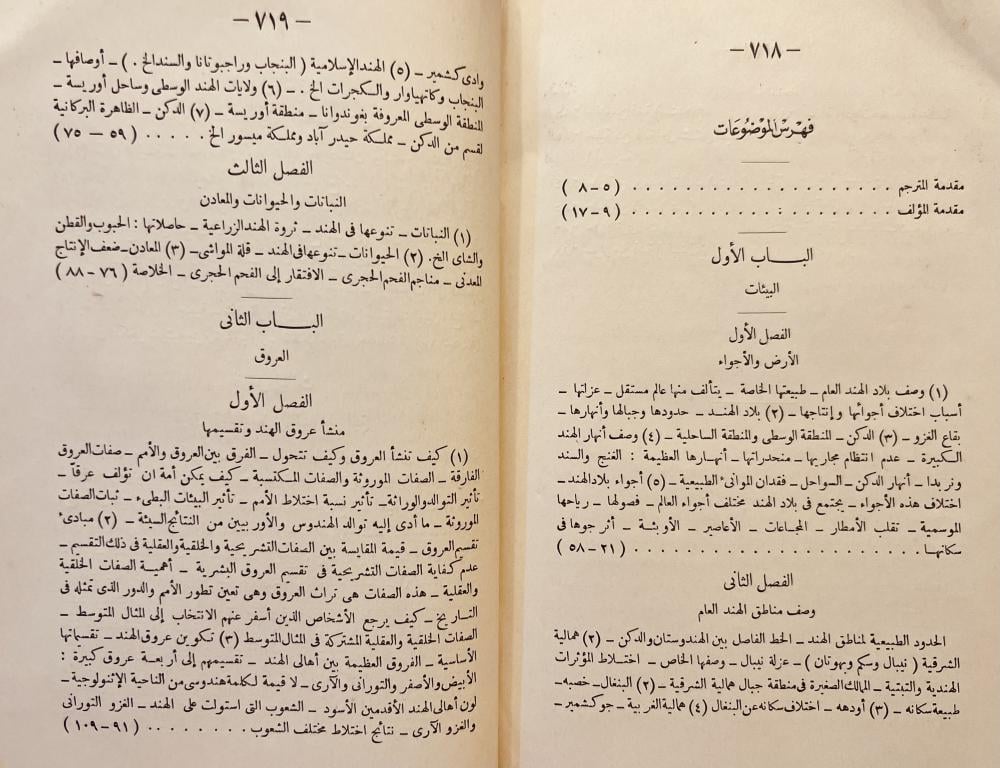 — ٧١٨ —
فهرس الموضوعات
مقدمة المترجم . . . . . . . . . . . . . . . . . . . (٥ – ٨)
مقدمة المؤلف . . . . . . . . . . . . . . . . . . . (٩ – ١٧)
البــاب الأول
البيئات
الفصل الأول
الأرض والأجواء
(١) وصف بلاد الهند العام – طبيعتها الخاصة – يتألف منها عالم مستقل – عزلتها –
أسباب اختلاف أجوائها وإنتاجها – (٢) بلاد الهنــد – حدودها وجبالها وأنهارها –
بقاع الغزو – (٣) الدكن – المنطقة الوسطى والمنطقة الساحلية – (٤) وصف أنهار الهند
الكبيرة – عدم انتظام مجاريها – منحدراتها – أنهـارها العظيمة : الغنج والسند
ونربدا – أنهار الدكن – السواحل – فقدان الموانئ الطبيعية – (٥) أجواء بلاد الهند –
اختلاف هذه الأجواء – يجتمع فى بلاد الهند مختلف أجواء العالم – فصولها – رياحها
الموسمية – تقلب الأمطار – المجاعات – الأعاصير – الأوبئــة – أثر جوها فى
سكانهـا . . . . . . . . . . . . . . . . . . . (٢١ – ٥٨)
الفصل الثانى
وصف مناطق الهند العام
الحدود الطبيعية لمناطق الهند – الخط الفاصل بين الهندوستان والدكن – (٢) همالية
الشرقية (نيبال وسكم وبهوتان) – عزلة نيبال – وصفها الخاص – اختــلاط المؤثرات
الهندية والتبتية – الممالك الصغيرة فى منطقة جبال همالية الشرقية – (٢) البنغال – خصبه –
طبيعة سكانه – (٣) أودهه – اختلاف سكانه عن البنغال (٤) همالية الغربية – جو كشمير –
— ٧١٩ —
وادى كشمير – (٥) الهند الإسلامية (البنجاب وراجبوتانا والسند الخ .) – أوصافها –
البنجاب وكاتهياوار والـكجرات الخ . – (٦) ولايات الهند الوسطى وساحل أوريسة –
المنطقة الوسطى المعروفة بغوندوانا – منطقة أوريسة – (٧) الدكن – الظاهرة البركانية
لقسم من الدكن – مملكة حيدر آباد ومملكة ميسور الخ . . . . . (٥٩ – ٧٥)
الفصل الثالث
النباتات والحيوانات والمعادن
(١) النباتات – تنوعها فى الهند – ثروة الهند الزراعية – حاصلاتها : الحبوب والقطن
والشاى الخ . (٢) الحيوانات – تنوعها فى الهند – قلة المواشى – (٣) المعادن – ضعف الإنتاج
المعدنى – مناجم الفحم الحجرى – الافتقار إلى الفحم الحجرى – الخلاصة (٧٦ – ٨٨)
البــــاب الثانى
العروق
الفصل الأول
منشأ عروق الهند وتقسيمها
(١) كيف تنشأ العروق وكيف تتحول – الفرق بين العروق والأمم – صفات العروق
الفارقة – الصفات الموروثة والصفات المـكتسبة – كيف يمكن أمة ان تؤلف عرقاً –
تأثير التوالد والوراثة – تأثير نسبة اختلاط الأمم – تأثير البيئات البطىء – ثبات الصفات
الموروثة – ما أدى إليه توالد الهندوس والأوربيين من النتائج السيئة – (٢) مبادئ
تقسيم العروق – قيمة المقابسة بين الصفات التشريحية والخلقية والعقلية فى ذلك التقسيم –
عدم كفاية الصفات التشريحية فى تقسيم العروق البشرية – أهميـة الصفات الخلقية
والعقلية – هذه الصفات هى تراث العروق وهى تعين تطور الأمم والدور الذى تمثله فى
التــاريخ – كيف يرجع الأشخاص الذين أسفر عنهم الانتخاب إلى المثال المتوسط –
الصفات الخلقية والعقلية المشتركة فى المثال المتوسط (٣) تكوين عروق الهند – تقسيماتها
الأساسية – الفروق العظيمة بين أهالى الهند – تقسيمهم إلى أربعــة عروق كبيرة :
الأبيض والأصفر والتورانى والآرى – لا قيمة لـكلمة هندوسى من الناحية الإثنولوجية –
لون أهالى الهند الأقدمين الأسود – الشعوب التى استولت على الهند – الغزو التورانى
والغزو الآرى – نتائج اختلاط مختلف الشعوب . . . . . . . . (٩١ – ١٠٩)